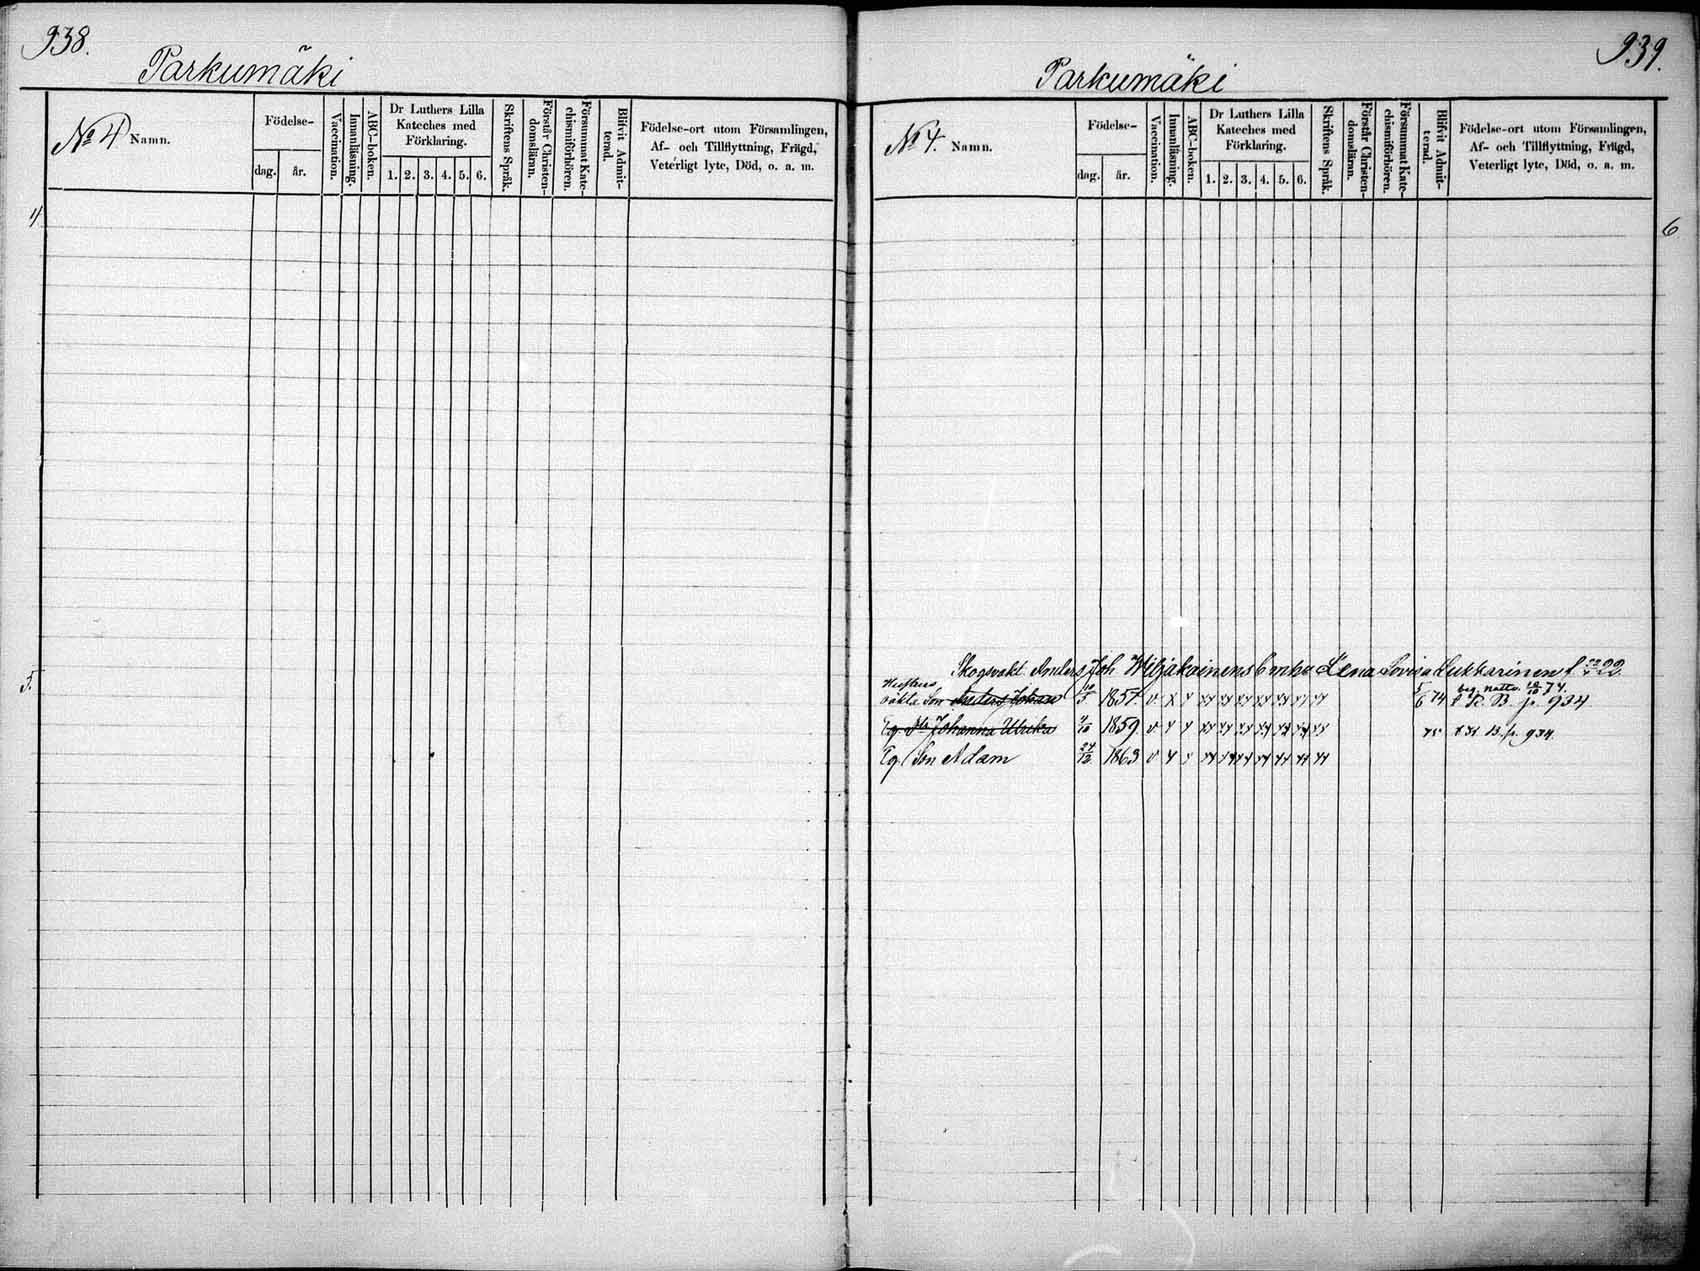 938.
Parkumäki
No 4 Namn.
Födelse-
dag. år.
Vaccination.
Innanläsning.
ABC-boken.
Dr Luthers Lilla
Kateches med
Förklaring.
1. 2. 3. 4. 5. 6.
Skriftens Språk.
Förstår Christen-
domsläran.
Försummat Kate-
chismiförhören.
Blifvit Admit-
terad.
Födelse-ort utom Församlingen,
Af- och Tillflyttning, Frägd,
Veterligt lyte, Död, o. a. m.
4
5.
939.
Parkumäki
No 4. Namn.
Födelse-
dag. år.
Vaccination.
Innanläsning.
ABC-boken.
Dr Luthers Lilla
Kateches med
Förklaring.
1. 2. 3. 4. 5. 6.
Skriftens Språk.
Förstår Christen-
domsläran.
Försummat Kate-
chismiförhören.
Blifvit Admit-
terad.
Födelse-ort utom Församlingen,
Af- och Tillflyttning, Frägd,
Veterligt lyte, Död, o. a. m.
6
Skogsvakt Anders Joh Lena Lovisa Lukkarinen f. 22
Hustrus
äkta Son Anders Johan 1857 v x 5/6 74 beg. nattv. 74. p. 934
Eg. Johanna Ulrika 1859 v 75 B. p. 934.
Eg. Son Adam 27/12 1863 v